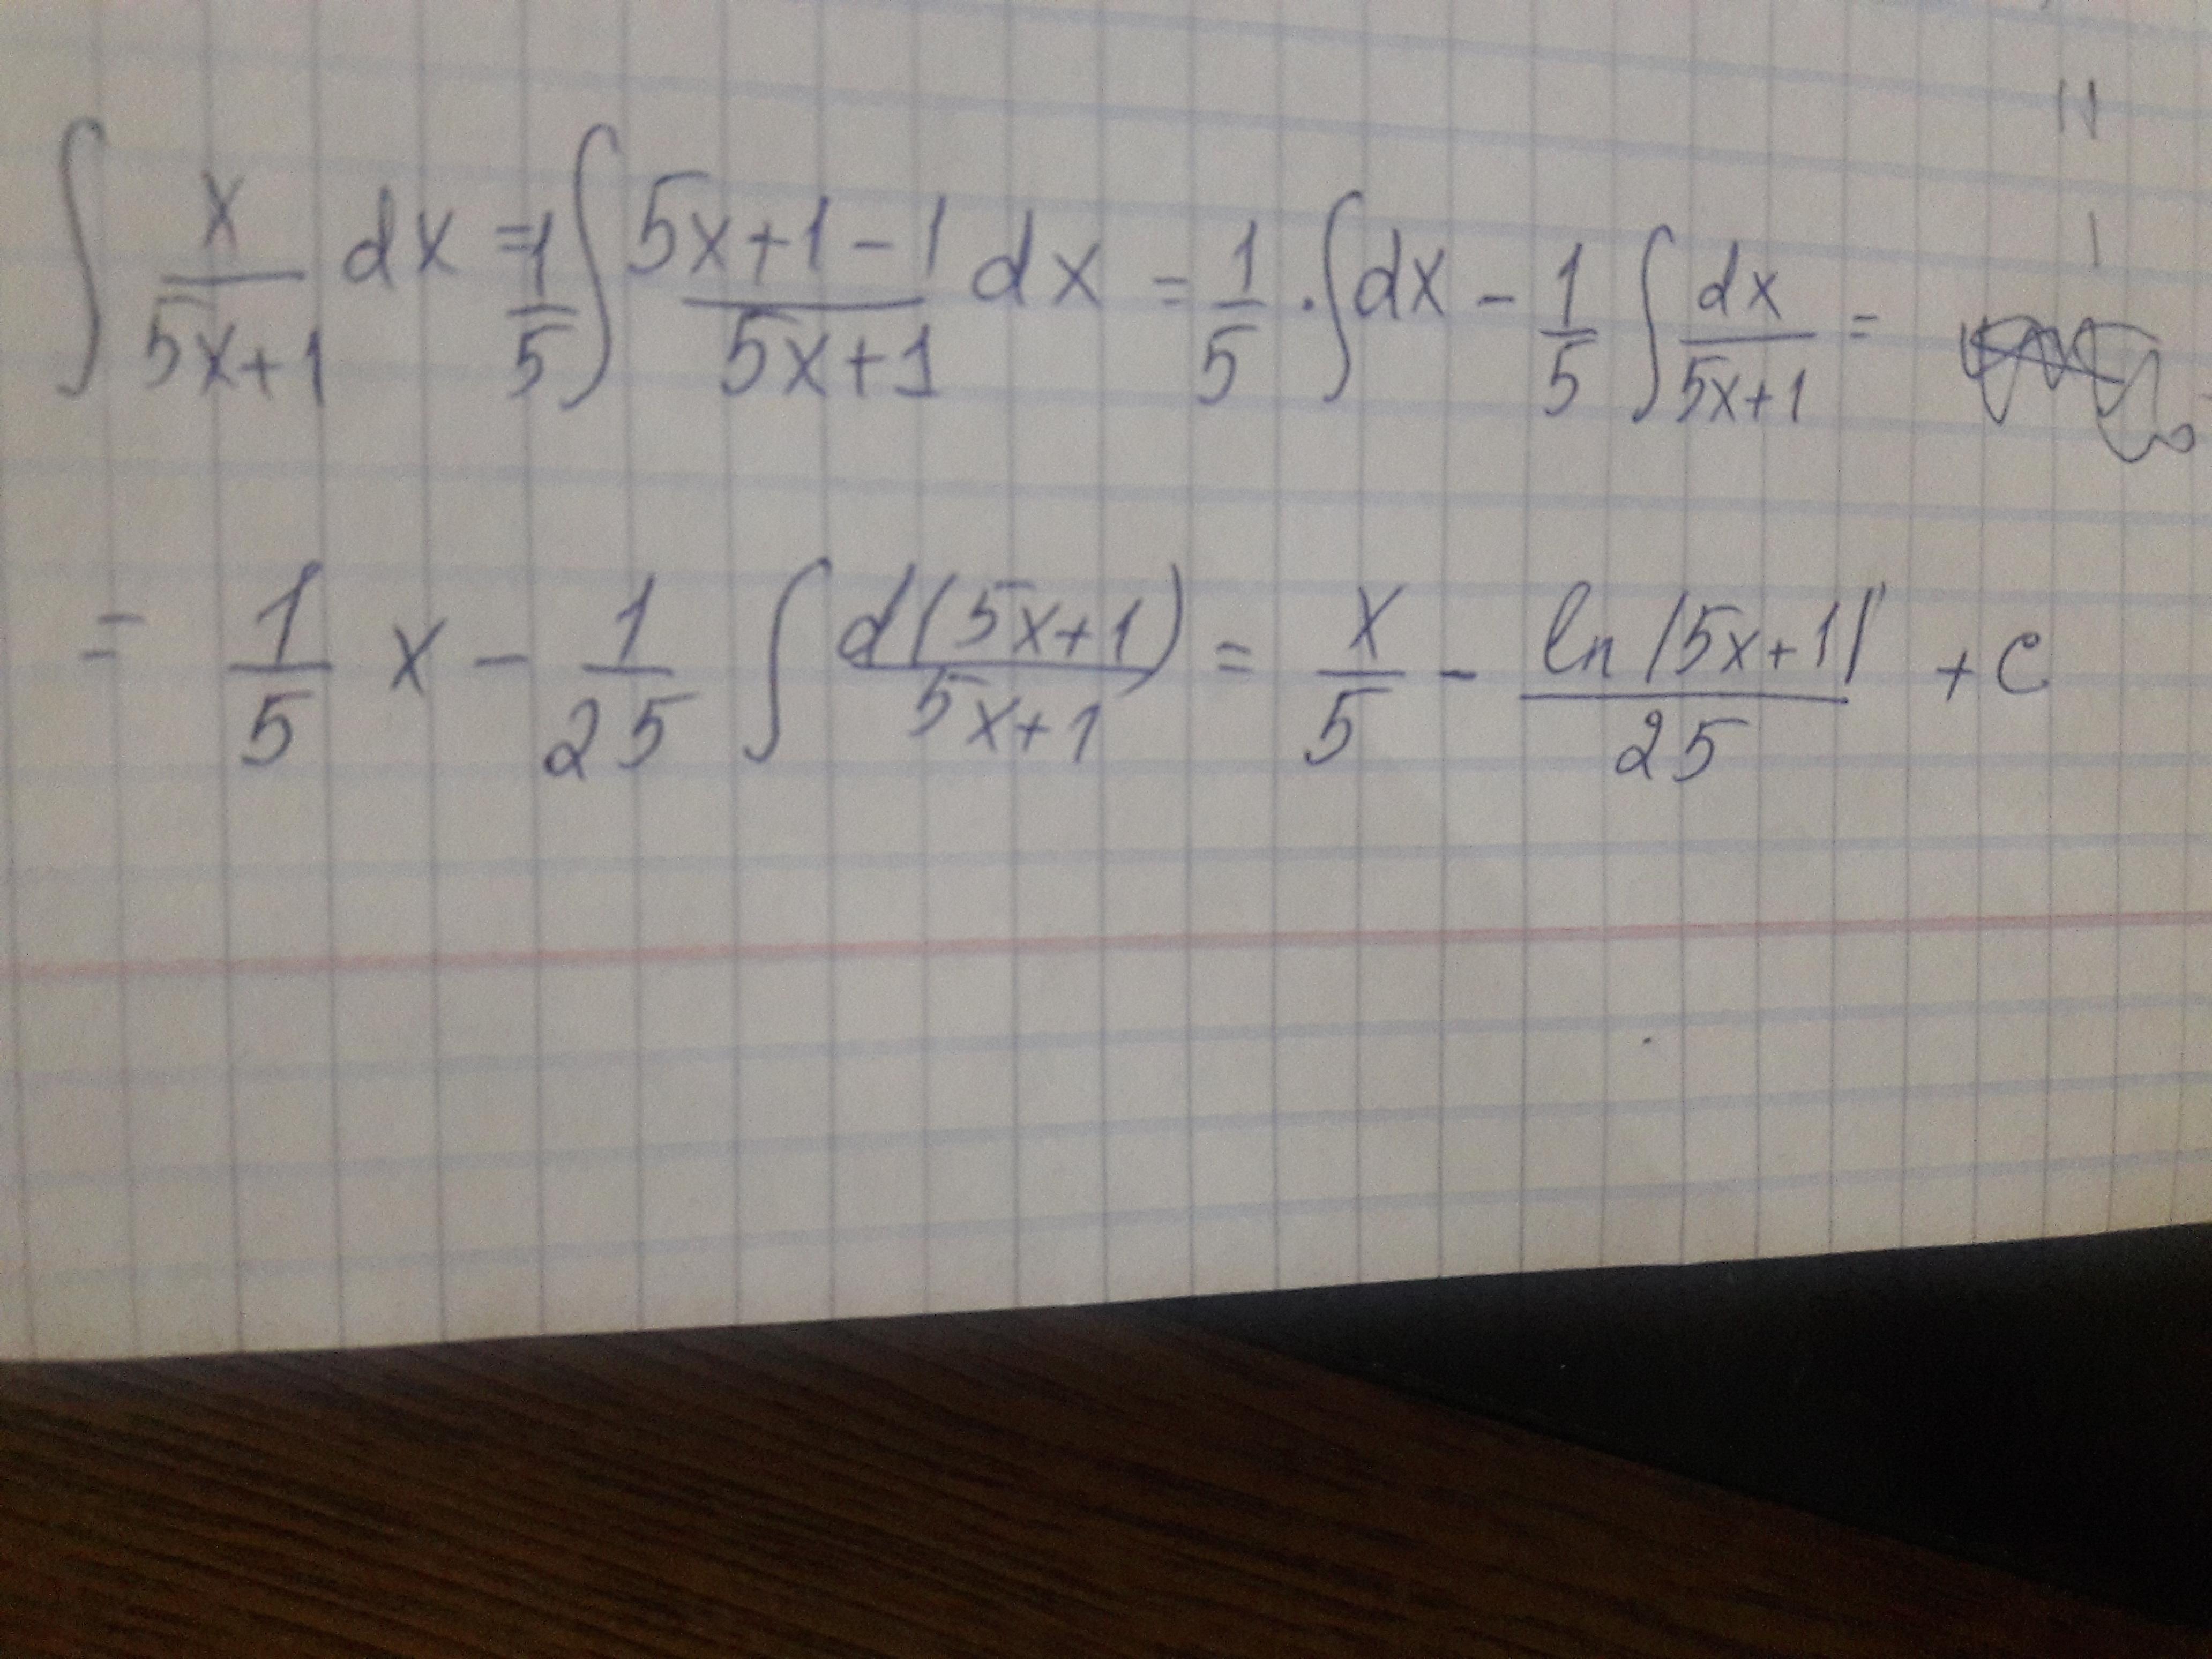 ∫ x/(5x+1) dx = 1/5 ∫ (5x+1-1)/(5x+1) dx = 1/5 · ∫ dx - 1/5 ∫ dx/(5x+1) =
= 1/5 x - 1/25 ∫ d(5x+1)/(5x+1) = x/5 - ln|5x+1|/25 + c